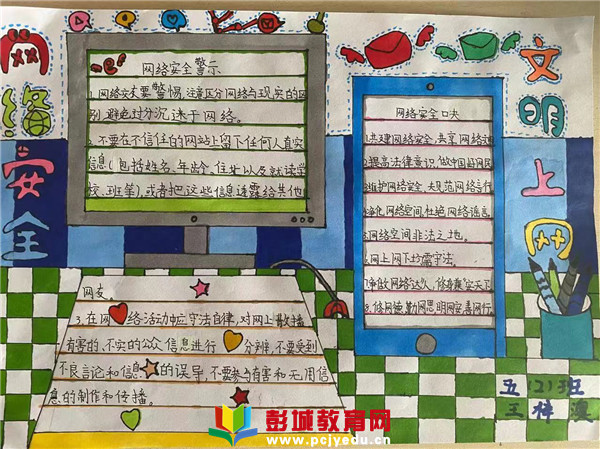 网络安全
网络安全警示
1.网络交友要警惕,注意区分网络与现实的区
别,避免过分沉迷于网络。
2.不要在不信任的网站上留下任何人真实
信息(包括姓名、年龄、住址以及就读学
校、班等),或者把这些信息透露给其他
网友。
3.在网络活动中应守法自律,对网上散播
有害的、不实的公众信息进行分辨,不要受到
不良言论和信息的误导,不要参与有害和无用信
息的制作和传播。
文明上网
网络安全口诀
1.共建网络安全,共享网络
2.提高法律意识,做中国好网民
3.维护网络安全,规范网络
4.净化网络空间,杜绝网络谣言
5.网络空间非法之地。
6.网上网下都需守法。
7.争做网络"达人",
8.网络
五(2)班
王梓
彭城教育网
www.pcjyedu.cn